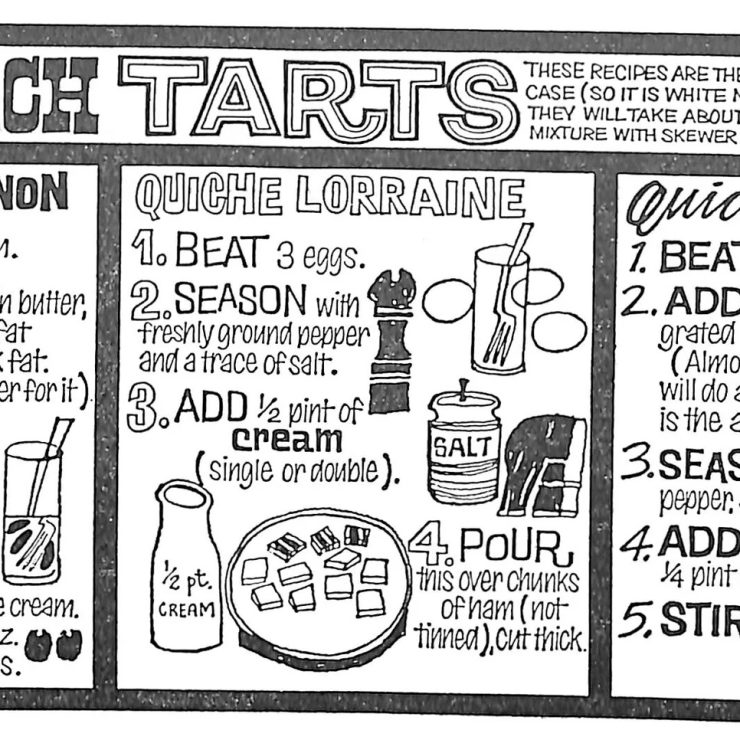 CH TARTS
THESE RECIPES ARE THE
CASE (SO IT IS WHITE
THEY WILL TAKE ABOUT
MIXTURE WITH SKEWER
NON
n butter,
fat
fat.
er for it)
e cream.
z.
s.
QUICHE LORRAINE
1. BEAT 3 eggs.
2. SEASON with
freshly ground pepper
and a trace of salt.
3. ADD ½ pint of
cream
(single or double).
SALT
½ pt.
CREAM
4. POUR
this over chunks
of ham (not
tinned), cut thick.
Quic
1. BEAT
2. ADD
grated
(Almo
will do a
is the a
3. SEAS
pepper.
4. ADD
¼ pint
5. STIR